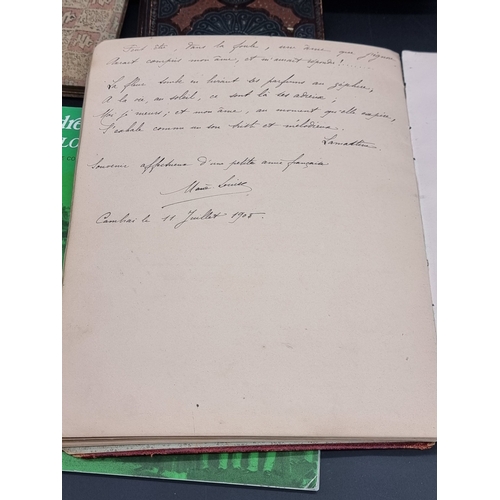 Peut-être, dans la foule, une âme que j'ignore
Aurait compris mon âme, et m'aurait répondu!......
La fleur tombe en livrant ses parfums au zéphire,
A la vie, au soleil, ce sont là ses adieux;
Moi je meurs; et mon âme, au moment qu'elle expire,
S'exhale comme un son triste et mélodieux.
Lamartine.
Souvenir affectueux d'une petite amie française
Marie Louise
Cambrai le 11 Juillet 1905.
dré
LO